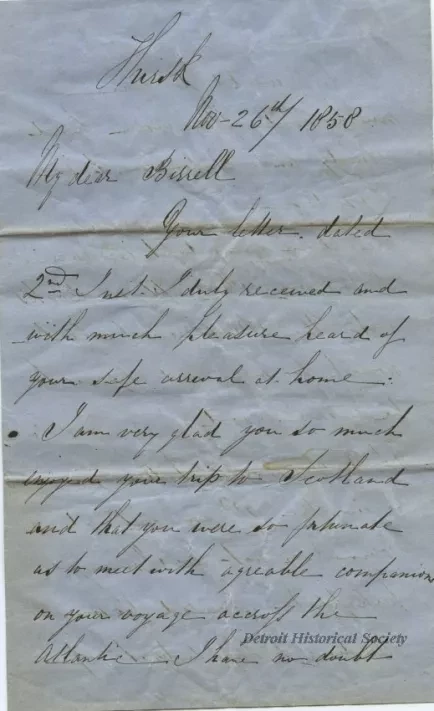 Thirsk
Nov - 26th / 1858
My dear Birrell
Your letter dated
2nd Inst. I duly received and
with much pleasure heard of
your safe arrival at home.
I am very glad you so much
enjoyed your trip to Scotland
and that you were so fortunate
as to meet with agreable companions
on your voyage accross the
Detroit Historical Society
Atlantic I have no doubt